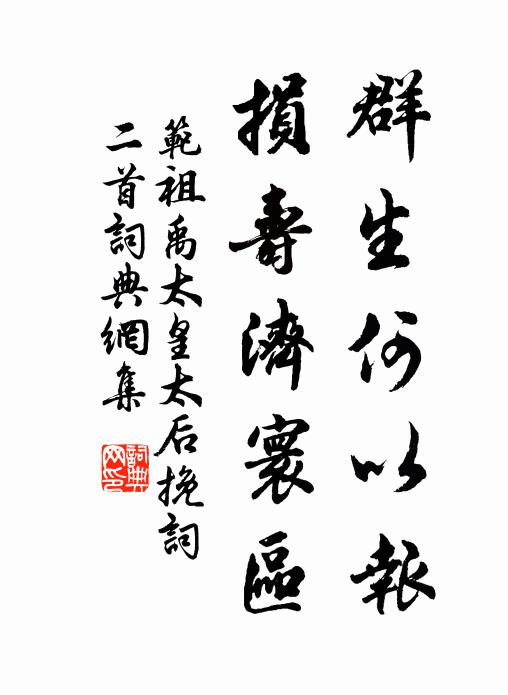 群生何以報
損壽濟寰區
範祖禹太皇太后挽詞
二首詞典網集
詞典網印